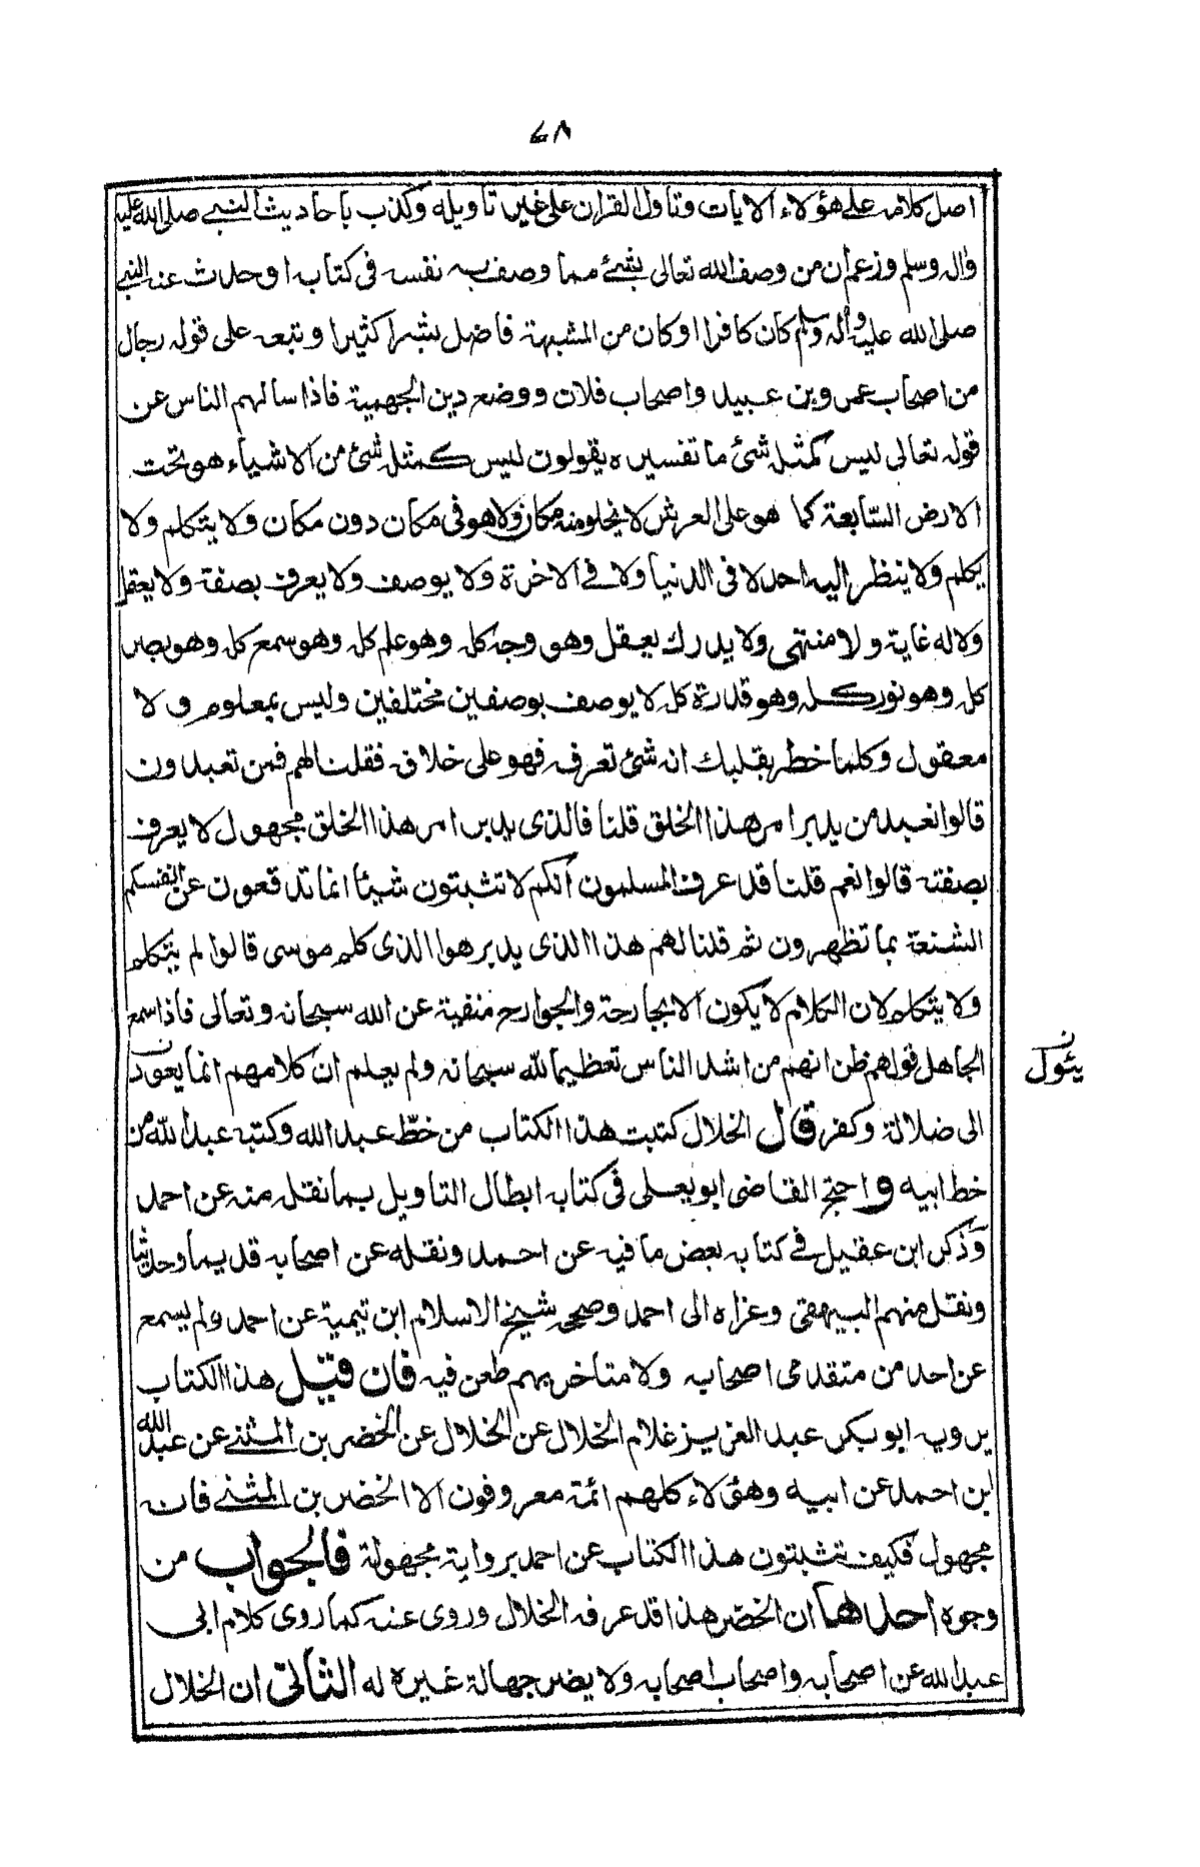 ٧٨
اصل كلامه على هؤلاء الايات وتاول القران على غير تاويله وكذب باحاديث النبي صلى الله عليه
واله وسلم وزعم ان من وصف الله تعالى بشئ مما وصف به نفسه فى كتابه او حدث عنه النبي
صلى الله عليه واله وسلم كان كافرا او كان من المشبهة فاضل بشرا كثيرا وتبعه على قوله رجال
من اصحاب عمرو بن عبيد واصحاب فلان ووضع دين الجهمية فاذا سالهم الناس عن
قوله تعالى ليس كمثله شئ ما تفسيره يقولون ليس كمثله شئ من الاشياء هو تحت
الارض السابعة كما هو على العرش لا يخلو منه مكان ولا هو فى مكان دون مكان ولا يتكلم ولا
يكلم ولا ينظر اليه احد لا فى الدنيا ولا في الاخرة ولا يوصف ولا يعرف بصفة ولا يعقل
ولا له غاية ولا منتهى ولا يدرك بعقل وهو وجه كله وهو علم كله وهو سمع كله وهو بصر
كله وهو نور كله وهو قدرة كله لا يوصف بوصفين مختلفين وليس بمعلوم ولا
معقول وكلما خطر بقلبك انه شئ تعرفه فهو على خلافه فقلنا لهم فمن تعبدون
قالوا نعبد من يدبر امر هذا الخلق قلنا فالذى يدبر امر هذا الخلق مجهول لا يعرف
بصفته قالوا نعم قلنا قد عرف المسلمون انكم لا تثبتون شيئا انما تدفعون عن انفسكم
الشنعة بما تظهرون ثم قلنا لهم هذا الذى يدبر هو الذى كلم موسى قالوا لم يتكلم
ولا يتكلم لان الكلام لا يكون الا بجارحة والجوارح منفية عن الله سبحانه وتعالى فاذا سمع
الجاهل قولهم ظن انهم من اشد الناس تعظيما لله سبحانه ولم يعلم ان كلامهم انما يعود
ن
يئول
الى ضلالة وكفر قال الخلال كتبت هذا الكتاب من خط عبد الله وكتبه عبد الله من
خط ابيه واحتج القاضى ابو يعلى فى كتابه ابطال التاويل بما نقله منه عن احمد
وذكر ابن عقيل في كتابه بعض ما فيه عن احمد ونقله عن اصحابه قديما وحديثا
ونقل منهم البيهقى وعزاه الى احمد وصححه شيخ الاسلام ابن تيمية عن احمد ولم يسمع
عن احد من متقدمى اصحابه ولا متأخريهم طعن فيه فان قيل هذا الكتاب
يرويه ابو بكر عبد العزيز غلام الخلال عن الخلال عن الخضر بن المثنى عن عبد الله
ابن احمد عن ابيه وهؤلاء كلهم ائمة معروفون الا الخضر بن المثنى فانه
مجهول فكيف تثبتون هذا الكتاب عن احمد برواية مجهولة فالجواب من
وجوه احدها ان الخضر هذا قد عرفه الخلال وروى عنه كما روى كلام ابى
عبد الله عن اصحابه واصحاب اصحابه ولا يضر جهالة غيره له الثانى ان الخلال